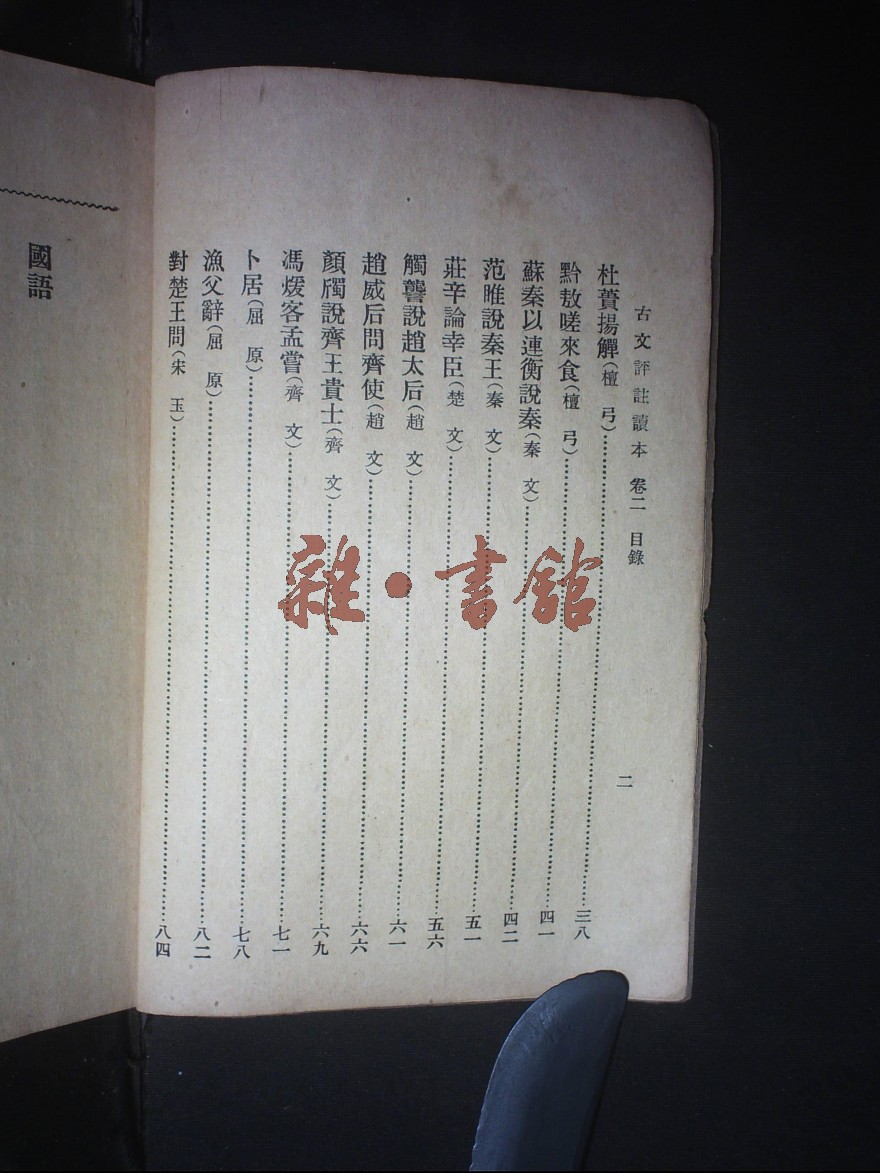 古文評註讀本 卷二 目錄 二
杜蕢揚觶(檀弓)……三八
黔敖嗟來食(檀弓)……四一
蘇秦以連衡說秦(秦文)……四二
范睢說秦王(秦文)……五一
莊辛論幸臣(楚文)……五六
觸讋說趙太后(趙文)……六一
趙威后問齊使(趙文)……六六
顏斶說齊王貴士(齊文)……六九
馮煖客孟嘗(齊文)……七一
卜居(屈原)……七八
漁父辭(屈原)……八二
對楚王問(宋玉)……八四
國語
雜·書館